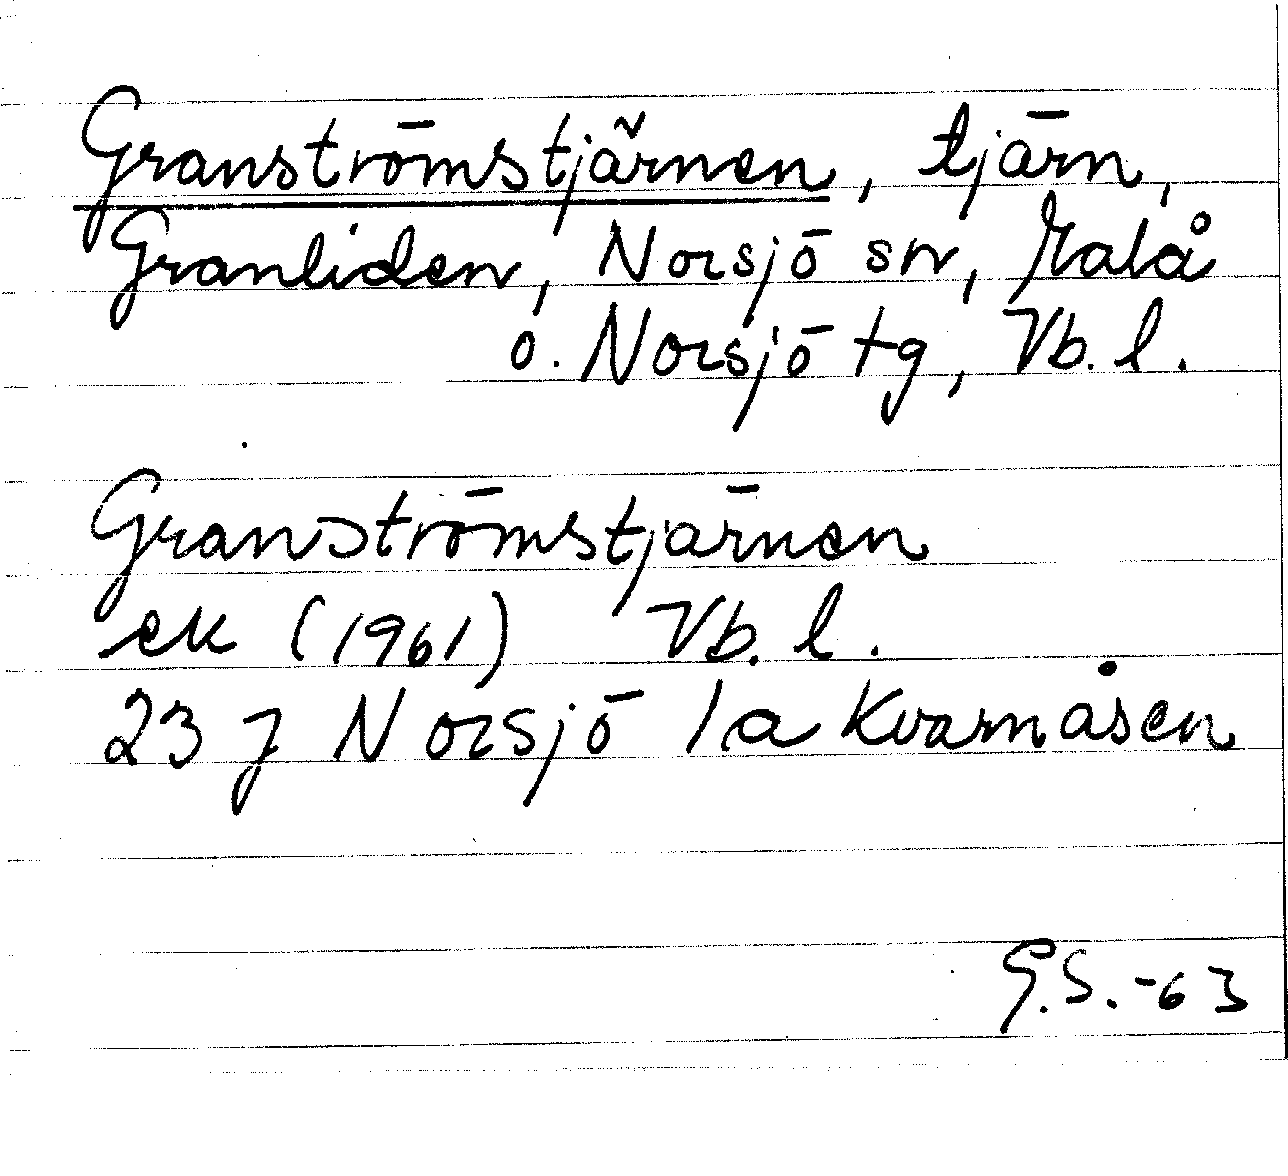 Granströmstjärnen, tjärn,
Granliden, Norsjö sn, Malå
o. Norsjö tg, Vb. l.
Granströmstjärnen
ek (1961) Vb. l.
23 J Norsjö 1a Kvarnåsen
G.S.-63